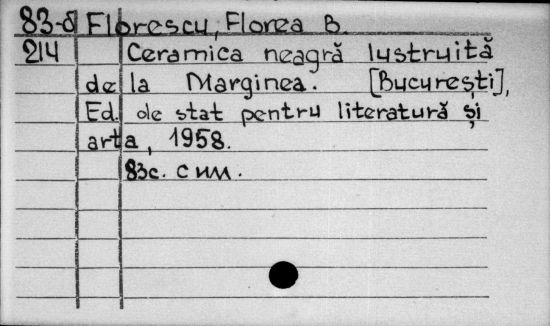 83-5 Florescu, Florea B.
214 Ceramica neagră lustruită
de la Marginea. [București],
Ed. de stat pentru literatură și
arta, 1958.
83c. с илл.